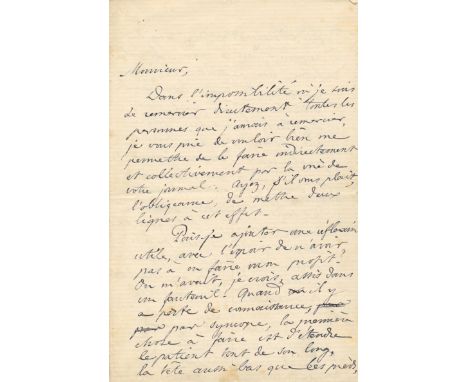 Monsieur,
Dans l'impossibilité où je suis
de remercier directement toutes les
personnes que j'aurais à remercier,
je vous prie de vouloir bien me
permettre de le faire indirectement
et collectivement par la voie de
votre journal. Ayez, s'il vous plaît,
l'obligeance, de mettre deux
lignes à cet effet.
Puis-je ajouter une réflexion
utile, avec l'espoir de n'avoir
pas à en faire mon profit?
On m'avait, je crois, assis dans
un fauteuil. Quand il y
a perte de connaissance,
par syncope, la première
chose à faire est d'étendre
le patient tout de son long,
la tête aussi bas que les pieds,